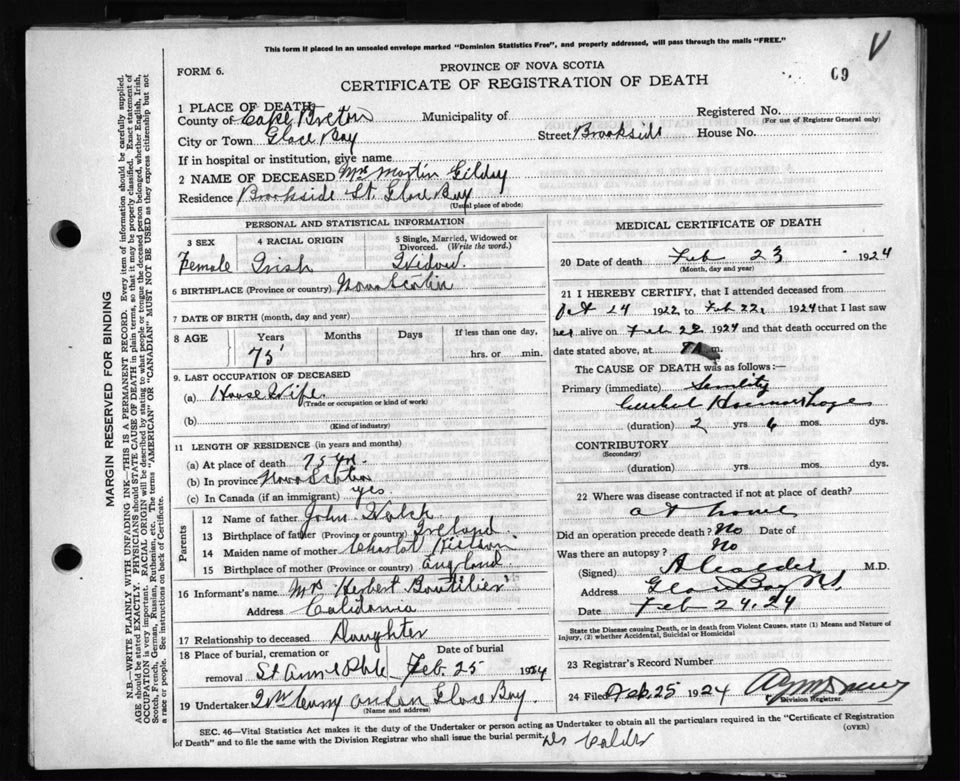 This form if placed in an unsealed envelope marked "Dominion Statistics Free", and properly addressed, will pass through the mails "FREE."
V
FORM 6.
PROVINCE OF NOVA SCOTIA
CERTIFICATE OF REGISTRATION OF DEATH
69
1 PLACE OF DEATH
County of Cape Breton Municipality of Registered No.
(For use of Registrar General only)
City or Town Glace Bay Street Brookside House No.
If in hospital or institution, give name
2 NAME OF DECEASED Mrs Martin
Residence Brookside St. Glace Bay
(Usual place of abode)
PERSONAL AND STATISTICAL INFORMATION
3 SEX 4 RACIAL ORIGIN 5 Single, Married, Widowed or Divorced. (Write the word.)
Female Irish Widow.
6 BIRTHPLACE (Province or country) Nova Scotia
7 DATE OF BIRTH (month, day and year)
8 AGE Years Months Days If less than one day,
75 hrs. or min.
9. LAST OCCUPATION OF DECEASED
(a) House Wife
(Trade or occupation or kind of work)
(b)
(Kind of industry)
11 LENGTH OF RESIDENCE (in years and months)
(a) At place of death 75 yr.
(b) In province Nova Scotia
(c) In Canada (if an immigrant) yes
Parents
12 Name of father John
13 Birthplace of father (Province or country) Ireland
14 Maiden name of mother
15 Birthplace of mother (Province or country) England
16 Informant's name Mrs Herbert Boutilier
Address Calidonia
17 Relationship to deceased Daughter
18 Place of burial, cremation or removal Date of burial
St Anns Feb. 25 1924
19 Undertaker Glace Bay
(Name and address)
MEDICAL CERTIFICATE OF DEATH
20 Date of death Feb 23 1924
(Month, day and year)
21 I HEREBY CERTIFY, that I attended deceased from
Oct 24 1922 to Feb 22, 1924 that I last saw
her alive on Feb 22 1924 and that death occurred on the
date stated above, at m.
The CAUSE OF DEATH was as follows:—
Primary (immediate) Senility
Haemorrhage
(duration) 2 yrs 6 mos. dys.
CONTRIBUTORY
(Secondary)
(duration) yrs. mos. dys.
22 Where was disease contracted if not at place of death?
at home
Did an operation precede death? No Date of
Was there an autopsy? No
(Signed) A Calder M.D.
Address Glace Bay NS.
Date Feb 24. 24
State the Disease causing Death, or in death from Violent Causes, state (1) Means and Nature of Injury, (2) whether Accidental, Suicidal or Homicidal
23 Registrar's Record Number
24 Filed Feb. 25 1924
Division Registrar.
SEC. 46—Vital Statistics Act makes it the duty of the Undertaker or person acting as Undertaker to obtain all the particulars required in the "Certificate of Registration
of Death" and to file the same with the Division Registrar who shall issue the burial permit.
(OVER)
Dr Calder
MARGIN RESERVED FOR BINDING
N.B.—WRITE PLAINLY WITH UNFADING INK—THIS IS A PERMANENT RECORD. Every item of information should be carefully supplied.
AGE should be stated EXACTLY. PHYSICIANS should STATE CAUSE OF DEATH in plain terms, so that it may be properly classified. Exact statement of
OCCUPATION is very important. RACIAL ORIGIN will be described by stating to what people or tongue the deceased person belonged, whether English, Irish,
Scotch, French, German, Russian, Ruthenian, etc. The terms "AMERICAN" OR "CANADIAN" MUST NOT BE USED as they express citizenship but not
a race or people. See instructions on back of Certificate.